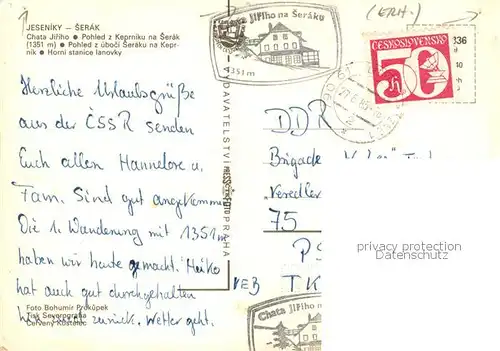 JESENÍKY — ŠERÁK
Chata Jiřího ● Pohled z Keprníku na Šerák
(1351 m) ● Pohled z úbočí Šeráku na Kepr-
ník ● Horní stanice lanovky
Herzliche Urlaubsgrüße
aus der ČSSR senden
Euch allen Hannelore u.
Fam. Sind gut angekommen
Die 1. Wanderung mit 1351m
haben wir heute gemacht. Heiko
hat auch gut durchgehalten
zurück. Wetter geht.
Foto Bohumír Prokůpek
Tisk Severografia
Červený Kostelec
VYDAVATELSTVÍ PRAHA
Chata Jiřího na Šeráku
1351 m
ČESKOSLOVENSKO
50 h
336
DDR
Brigade
Veredler
75
VEB TK
privacy protection
watermark
Chata Jiřího na